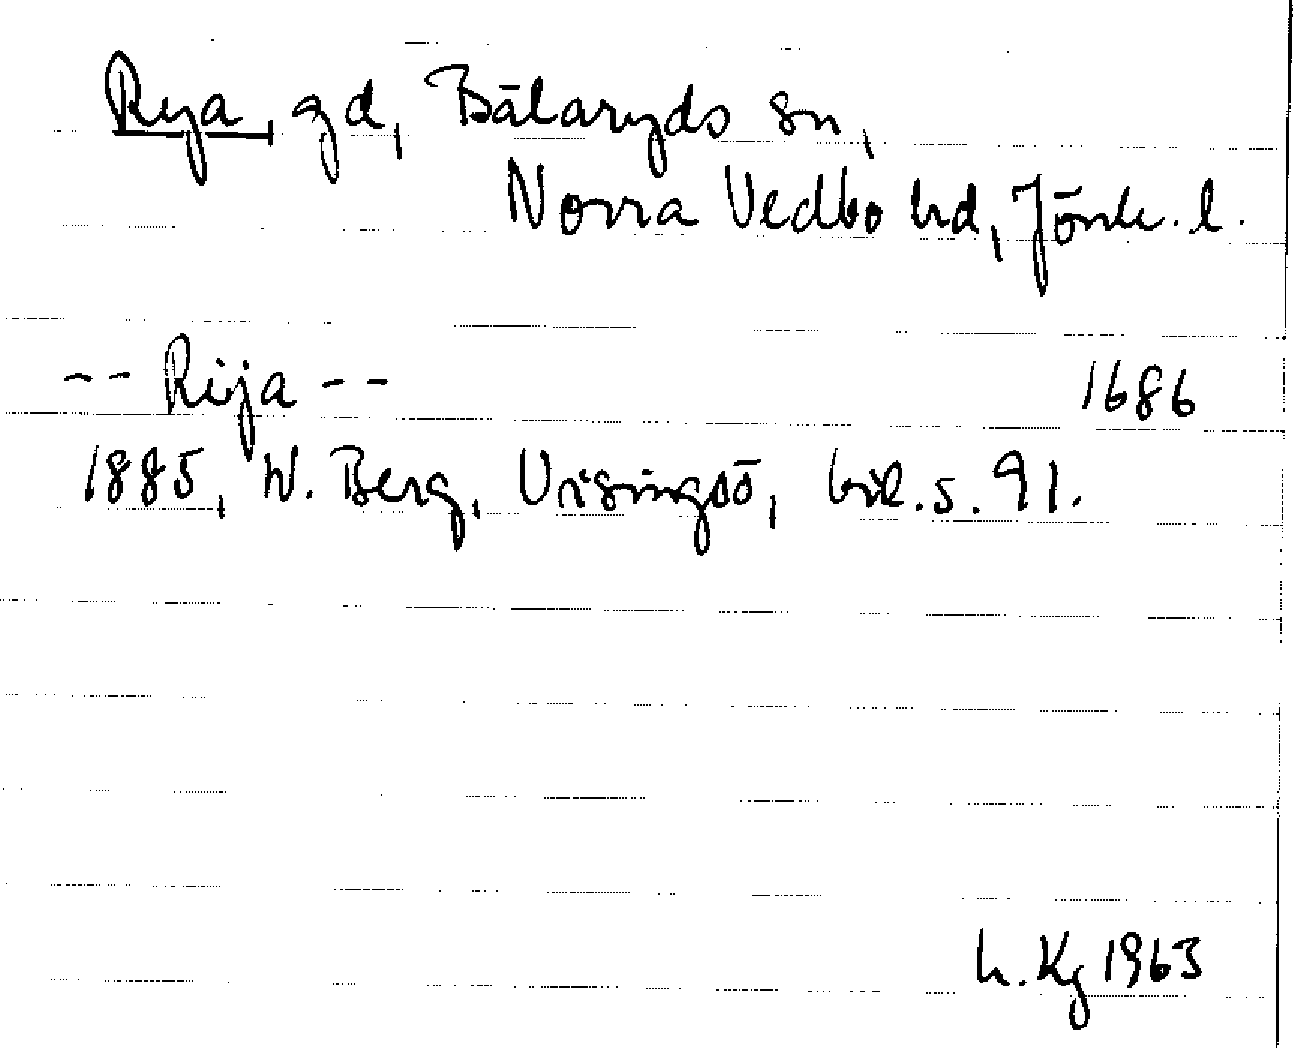 Rya, gd, Bälaryds sn,
Norra Vedbo hd, Jönk. l.
-- Rija -- 1686
1885, W. Berg, Visingsö, bil. s. 91.
h. Kg 1963